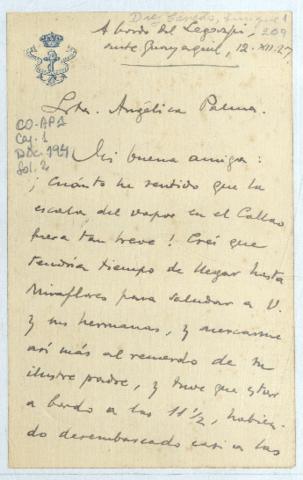 Diez Canedo, Enrique 1
209
A bordo del Legazpi,
ante Guayaquil, 12-XII-27
Srta. Angélica Palma.
CO-AP1
Caj. 1
Doc. 194
fol. 2
Mi buena amiga:
¡Cuánto he sentido que la
escala del vapor en el Callao
fuera tan breve! Creí que
tendría tiempo de llegar hasta
Miraflores para saludar a V.
y sus hermanas, y acercarme
así más al recuerdo de su
ilustre padre, y tuve que estar
a bordo a las 11 1/2, habien-
do desembarcado casi a las